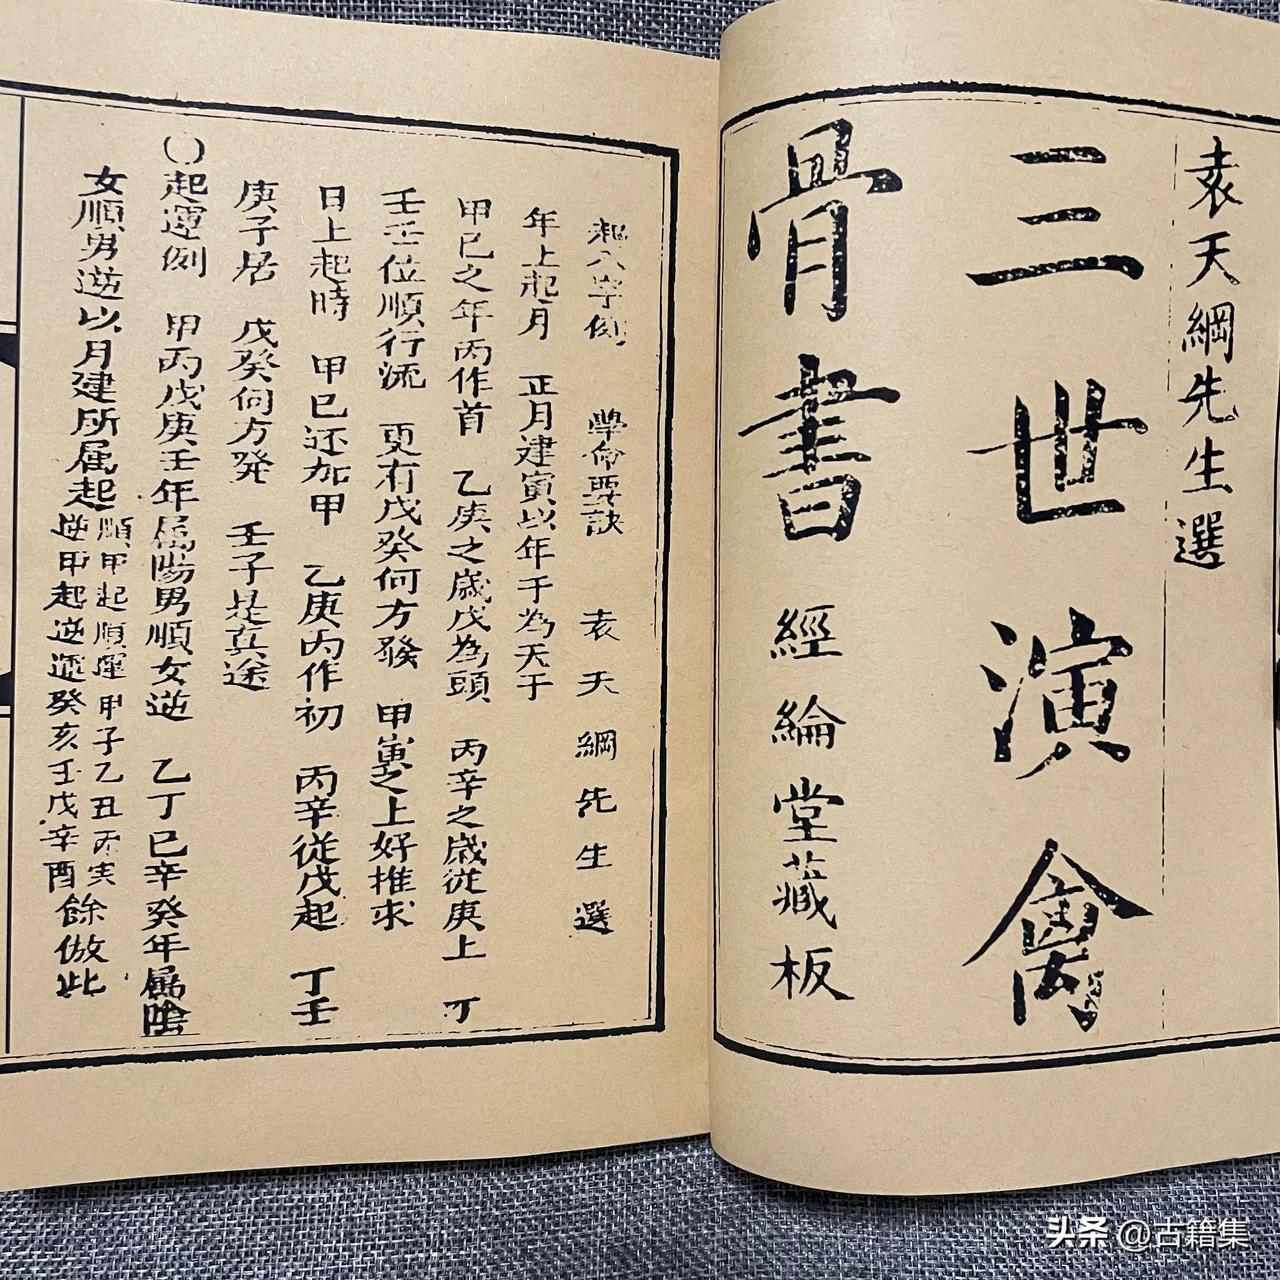 袁天綱先生選
三世演禽
骨書
經綸堂藏板
起八字例 學命要訣 袁天綱先生選
年上起月 正月建寅以年干為天干
甲已之年丙作首 乙庚之歲戊為頭 丙辛之歲從庚上 丁
壬壬位順行流 更有戊癸何方發 甲寅之上好推求
日上起時 甲已还加甲 乙庚丙作初 丙辛從戊起 丁壬
庚子居 戊癸何方発 壬子是真途
〇起運例 甲丙戊庚壬年属陽男順女逆 乙丁已辛癸年属陰
女順男逆以月建所属起
順甲起順運 甲子乙丑丙寅
逆甲起逆運癸亥壬戌辛酉
餘倣此
头条@古籍集